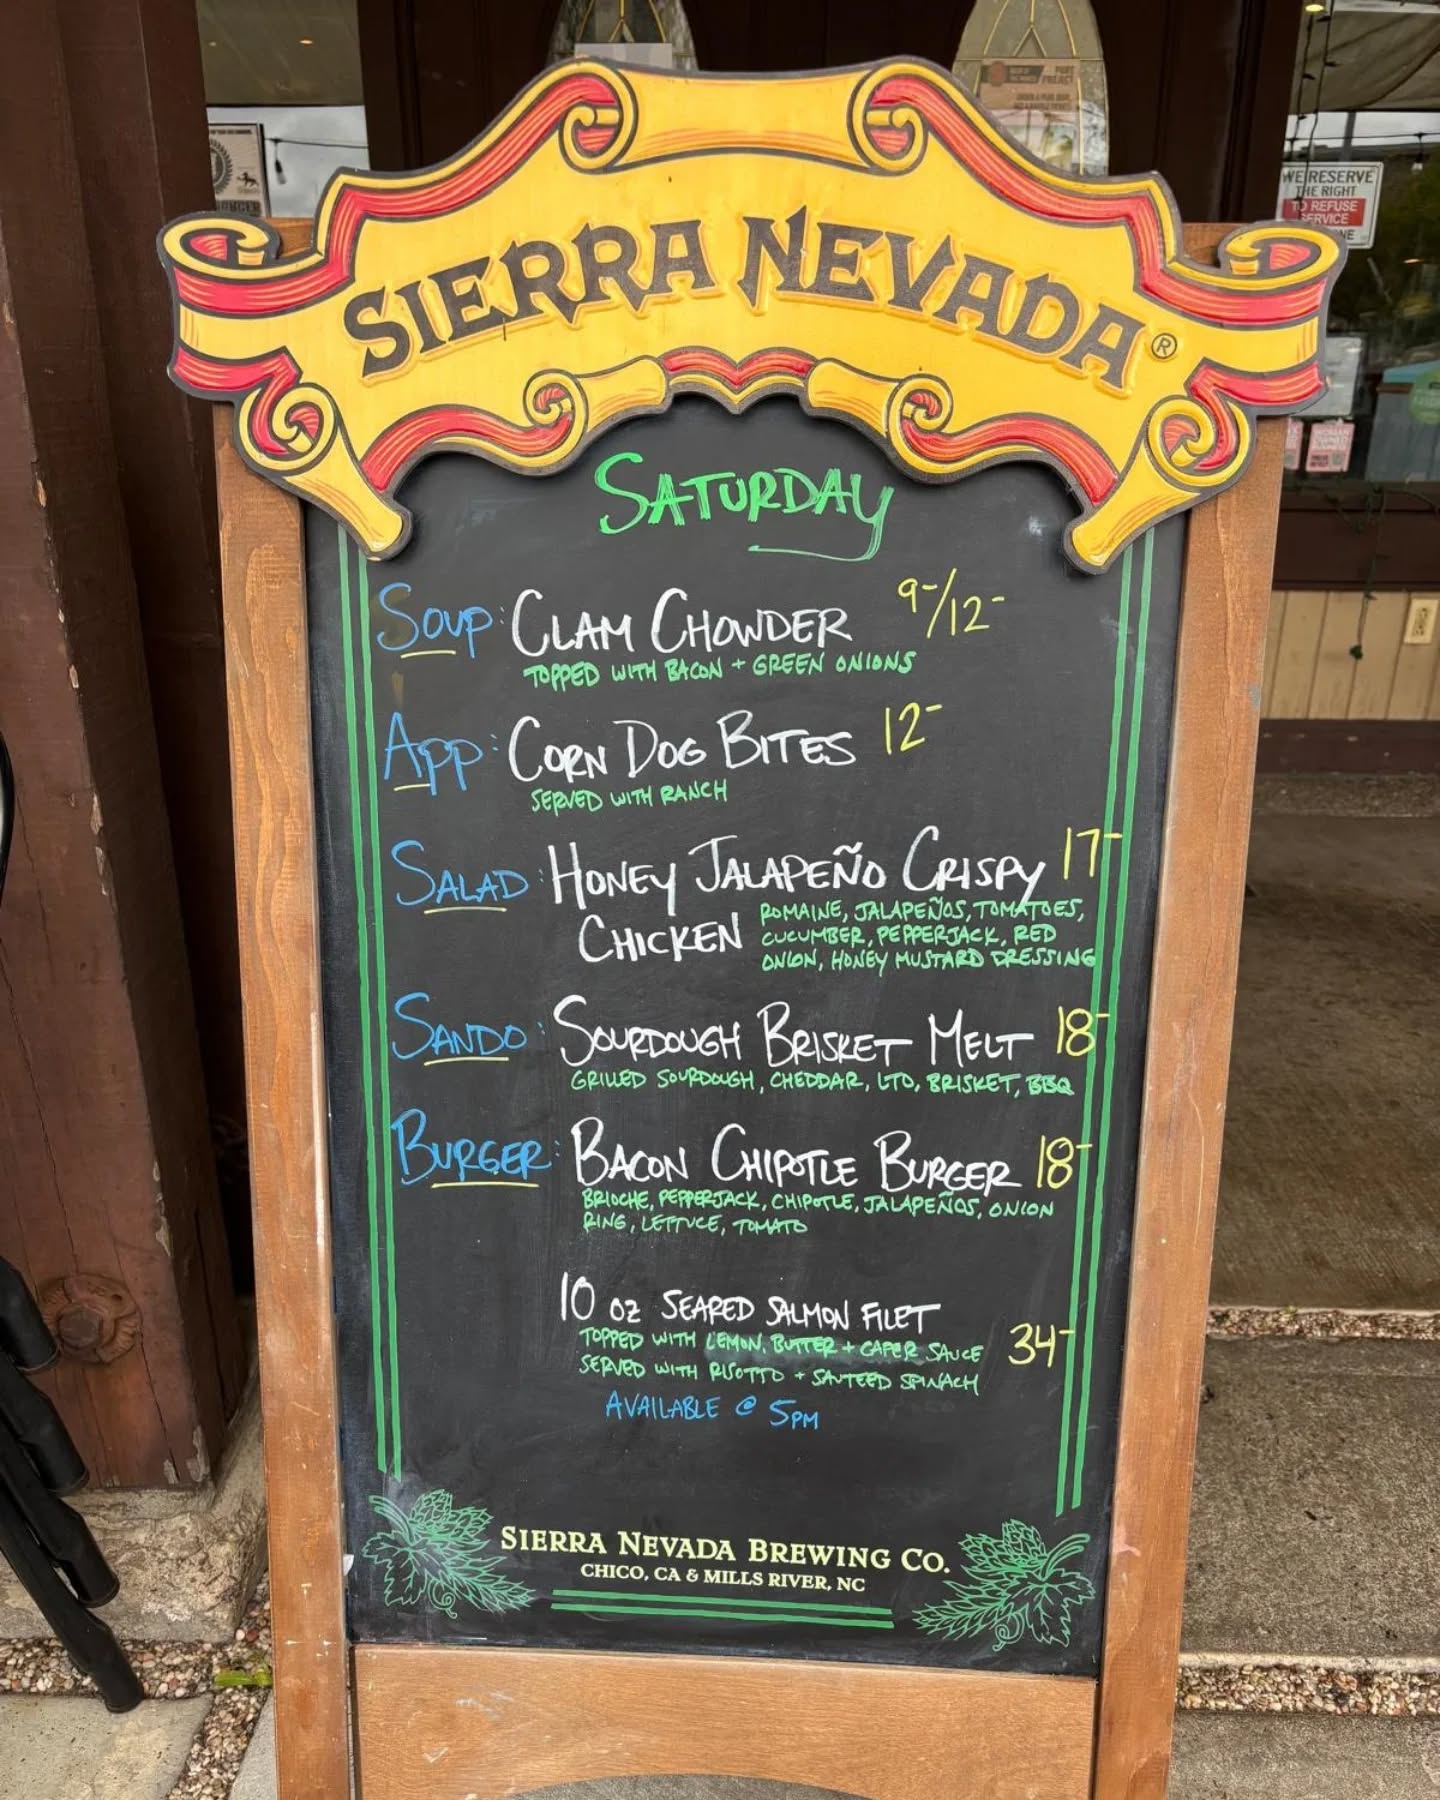 SIERRA NEVADA®
WE RESERVE
THE RIGHT
TO REFUSE
SERVICE
SATURDAY
SOUP: CLAM CHOWDER 9-/12-
TOPPED WITH BACON + GREEN ONIONS
APP: CORN DOG BITES 12-
SERVED WITH RANCH
SALAD: HONEY JALAPEÑO CRISPY 17-
CHICKEN
ROMAINE, JALAPEÑOS, TOMATOES,
CUCUMBER, PEPPERJACK, RED
ONION, HONEY MUSTARD DRESSING
SANDO: SOURDOUGH BRISKET MELT 18-
GRILLED SOURDOUGH, CHEDDAR, LTO, BRISKET, BBQ
BURGER: BACON CHIPOTLE BURGER 18-
BRIOCHE, PEPPERJACK, CHIPOTLE, JALAPEÑOS, ONION
RING, LETTUCE, TOMATO
10 OZ SEARED SALMON FILET
TOPPED WITH LEMON, BUTTER + CAPER SAUCE 34-
SERVED WITH RISOTTO + SAUTEED SPINACH
AVAILABLE @ 5PM
SIERRA NEVADA BREWING CO.
CHICO, CA & MILLS RIVER, NC